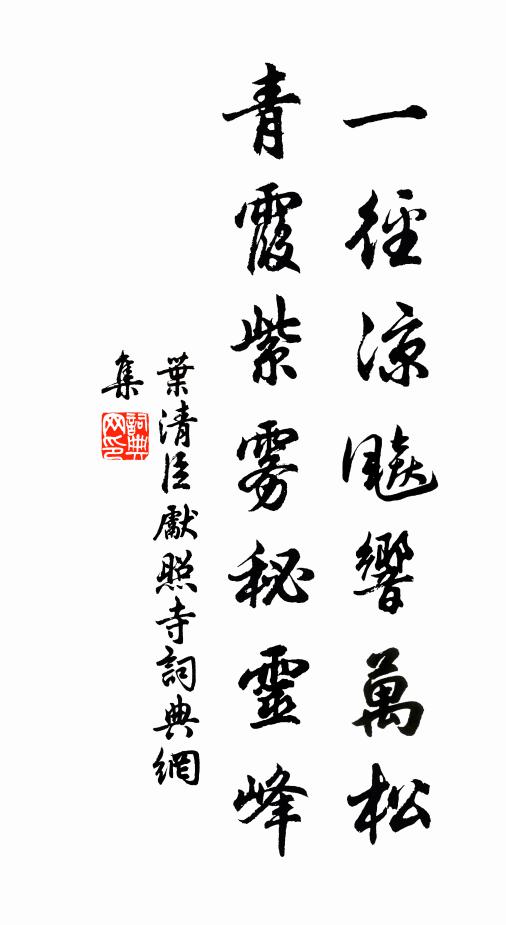 一徑涼飈響萬松
青霞紫雾秘靈峰
葉清臣獻照寺詞典網
集
詞典
网印